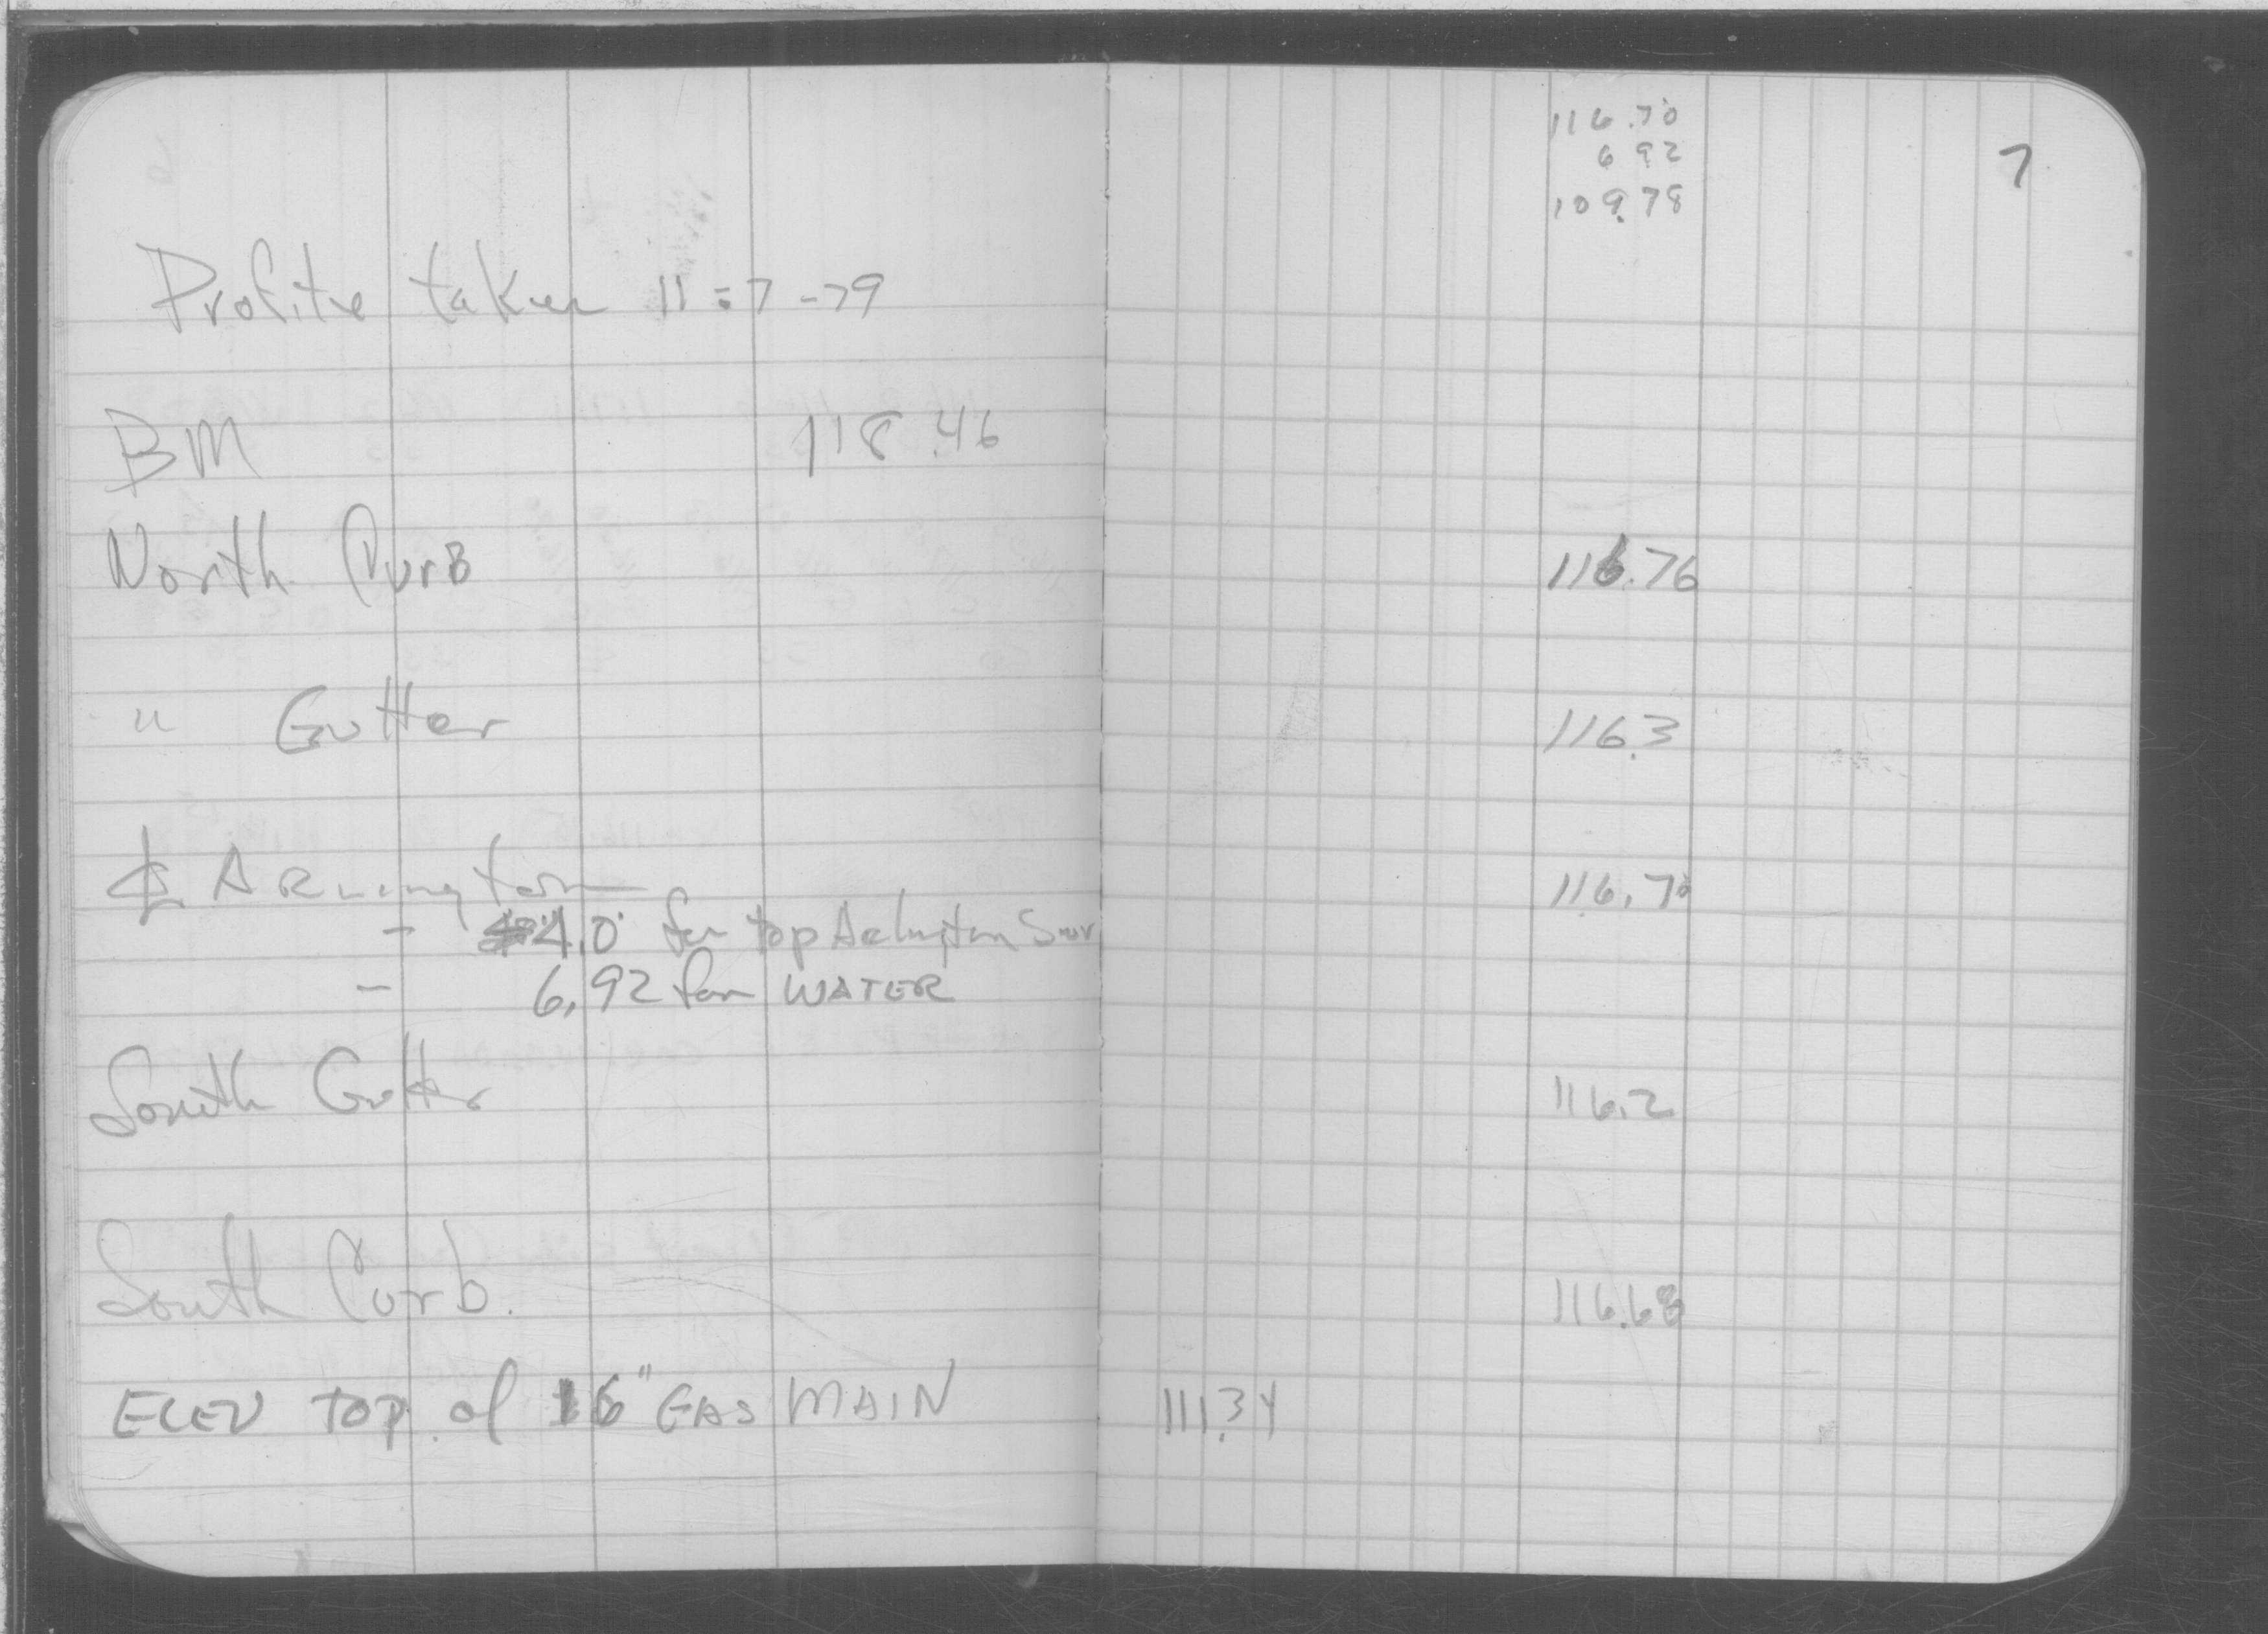 116.70
6 92
109.78
7
Profile taken 11-7-79
BM 118.46
North Curb 116.76
" Gutter 116.3
℄ Arlington 116.70
- 4.0 for top Arlington
- 6.92 for WATER
South Gutter 116.2
South Curb. 116.68
ELEV TOP of 16" GAS MAIN 111.34